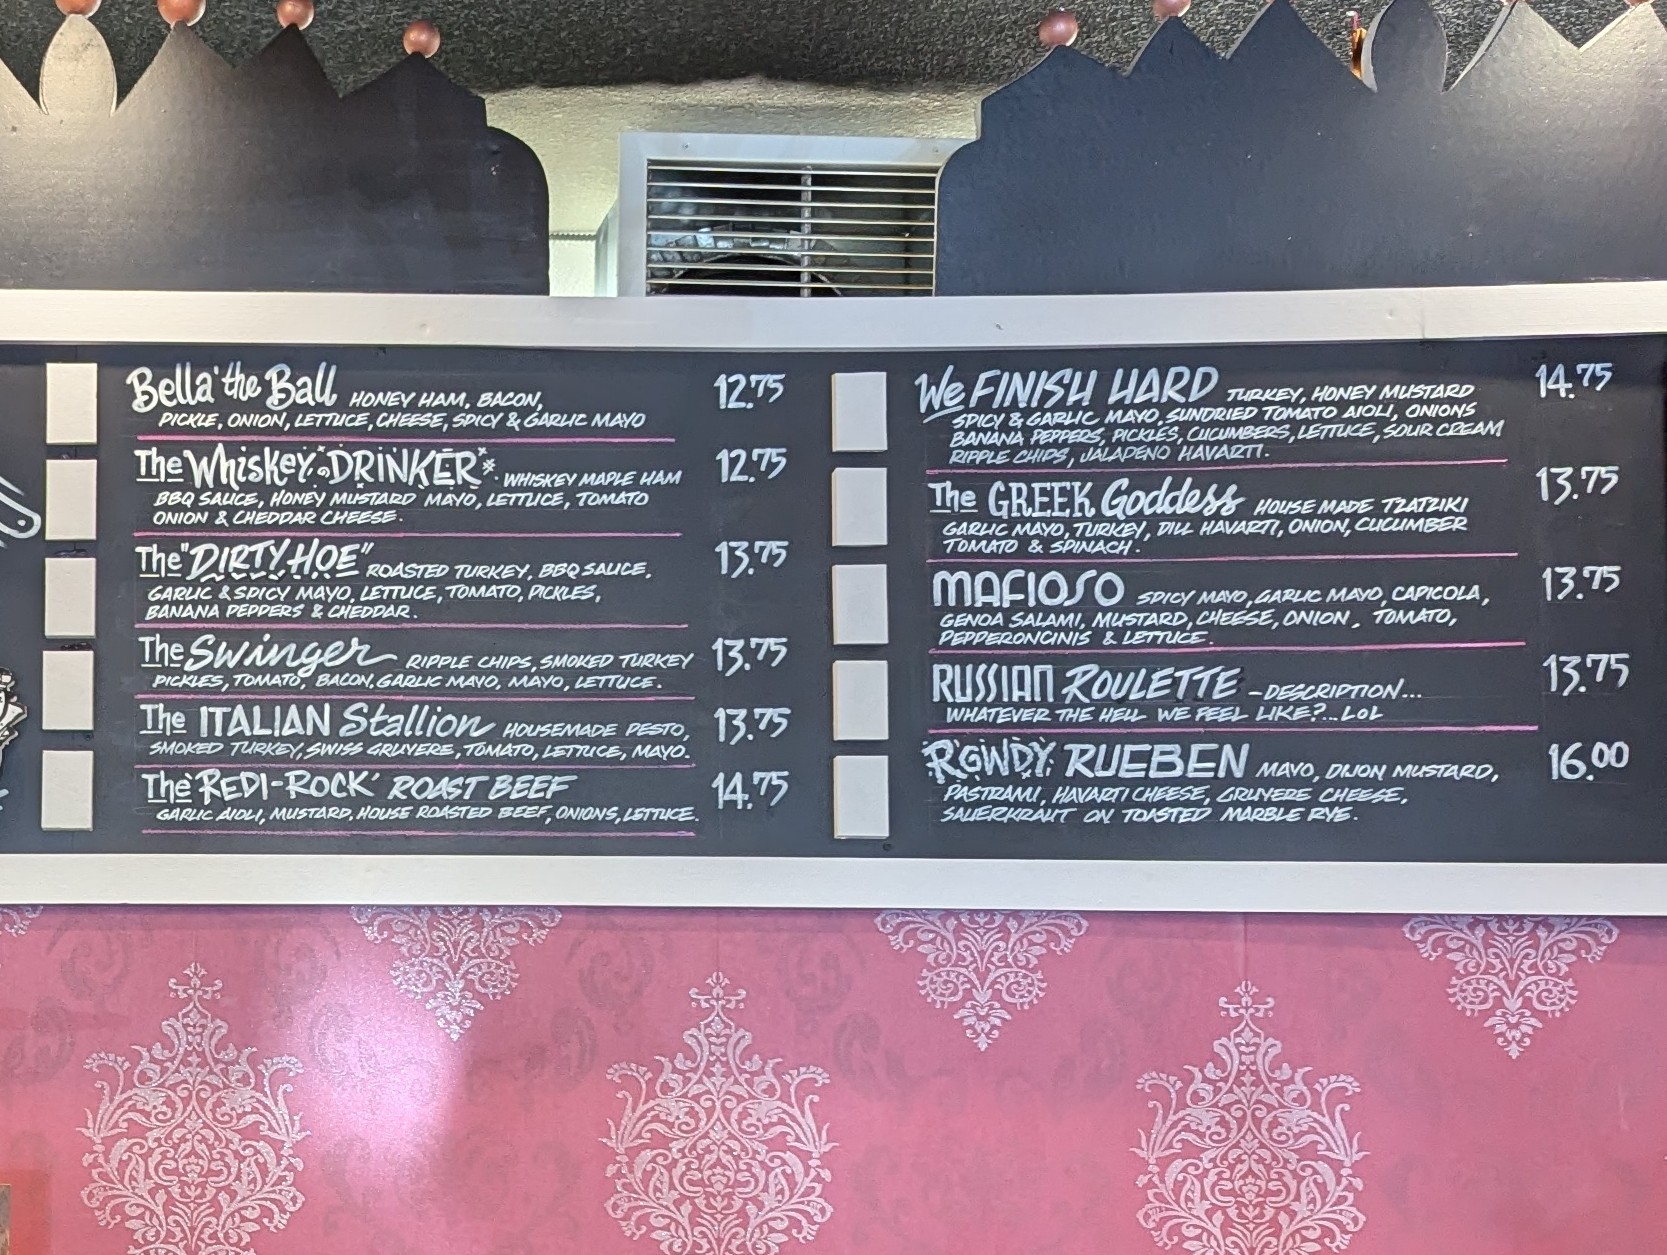 Bella the Ball HONEY HAM, BACON, 12.75
PICKLE, ONION, LETTUCE, CHEESE, SPICY & GARLIC MAYO
The Whiskey DRINKER WHISKEY MAPLE HAM 12.75
BBQ SAUCE, HONEY MUSTARD MAYO, LETTUCE, TOMATO
ONION & CHEDDAR CHEESE.
The "DIRTY HOE" ROASTED TURKEY, BBQ SAUCE, 13.75
GARLIC & SPICY MAYO, LETTUCE, TOMATO, PICKLES,
BANANA PEPPERS & CHEDDAR.
The Swinger RIPPLE CHIPS, SMOKED TURKEY 13.75
PICKLES, TOMATO, BACON, GARLIC MAYO, MAYO, LETTUCE.
The ITALIAN Stallion HOUSEMADE PESTO, 13.75
SMOKED TURKEY, SWISS GRUYERE, TOMATO, LETTUCE, MAYO.
The 'REDI-ROCK' ROAST BEEF 14.75
GARLIC AIOLI, MUSTARD, HOUSE ROASTED BEEF, ONIONS, LETTUCE.
We FINISH HARD TURKEY, HONEY MUSTARD 14.75
SPICY & GARLIC MAYO, SUNDRIED TOMATO AIOLI, ONIONS
BANANA PEPPERS, PICKLES, CUCUMBERS, LETTUCE, SOUR CREAM
RIPPLE CHIPS, JALAPENO HAVARTI.
The GREEK Goddess HOUSE MADE TZATZIKI 13.75
GARLIC MAYO, TURKEY, DILL HAVARTI, ONION, CUCUMBER
TOMATO & SPINACH.
MAFIOSO SPICY MAYO, GARLIC MAYO, CAPICOLA, 13.75
GENOA SALAMI, MUSTARD, CHEESE, ONION, TOMATO,
PEPPERONCINIS & LETTUCE.
RUSSIAN ROULETTE - DESCRIPTION... 13.75
WHATEVER THE HELL WE FEEL LIKE?... LOL
ROWDY RUEBEN MAYO, DIJON MUSTARD, 16.00
PASTRAMI, HAVARTI CHEESE, GRUYERE CHEESE,
SAUERKRAUT ON TOASTED MARBLE RYE.